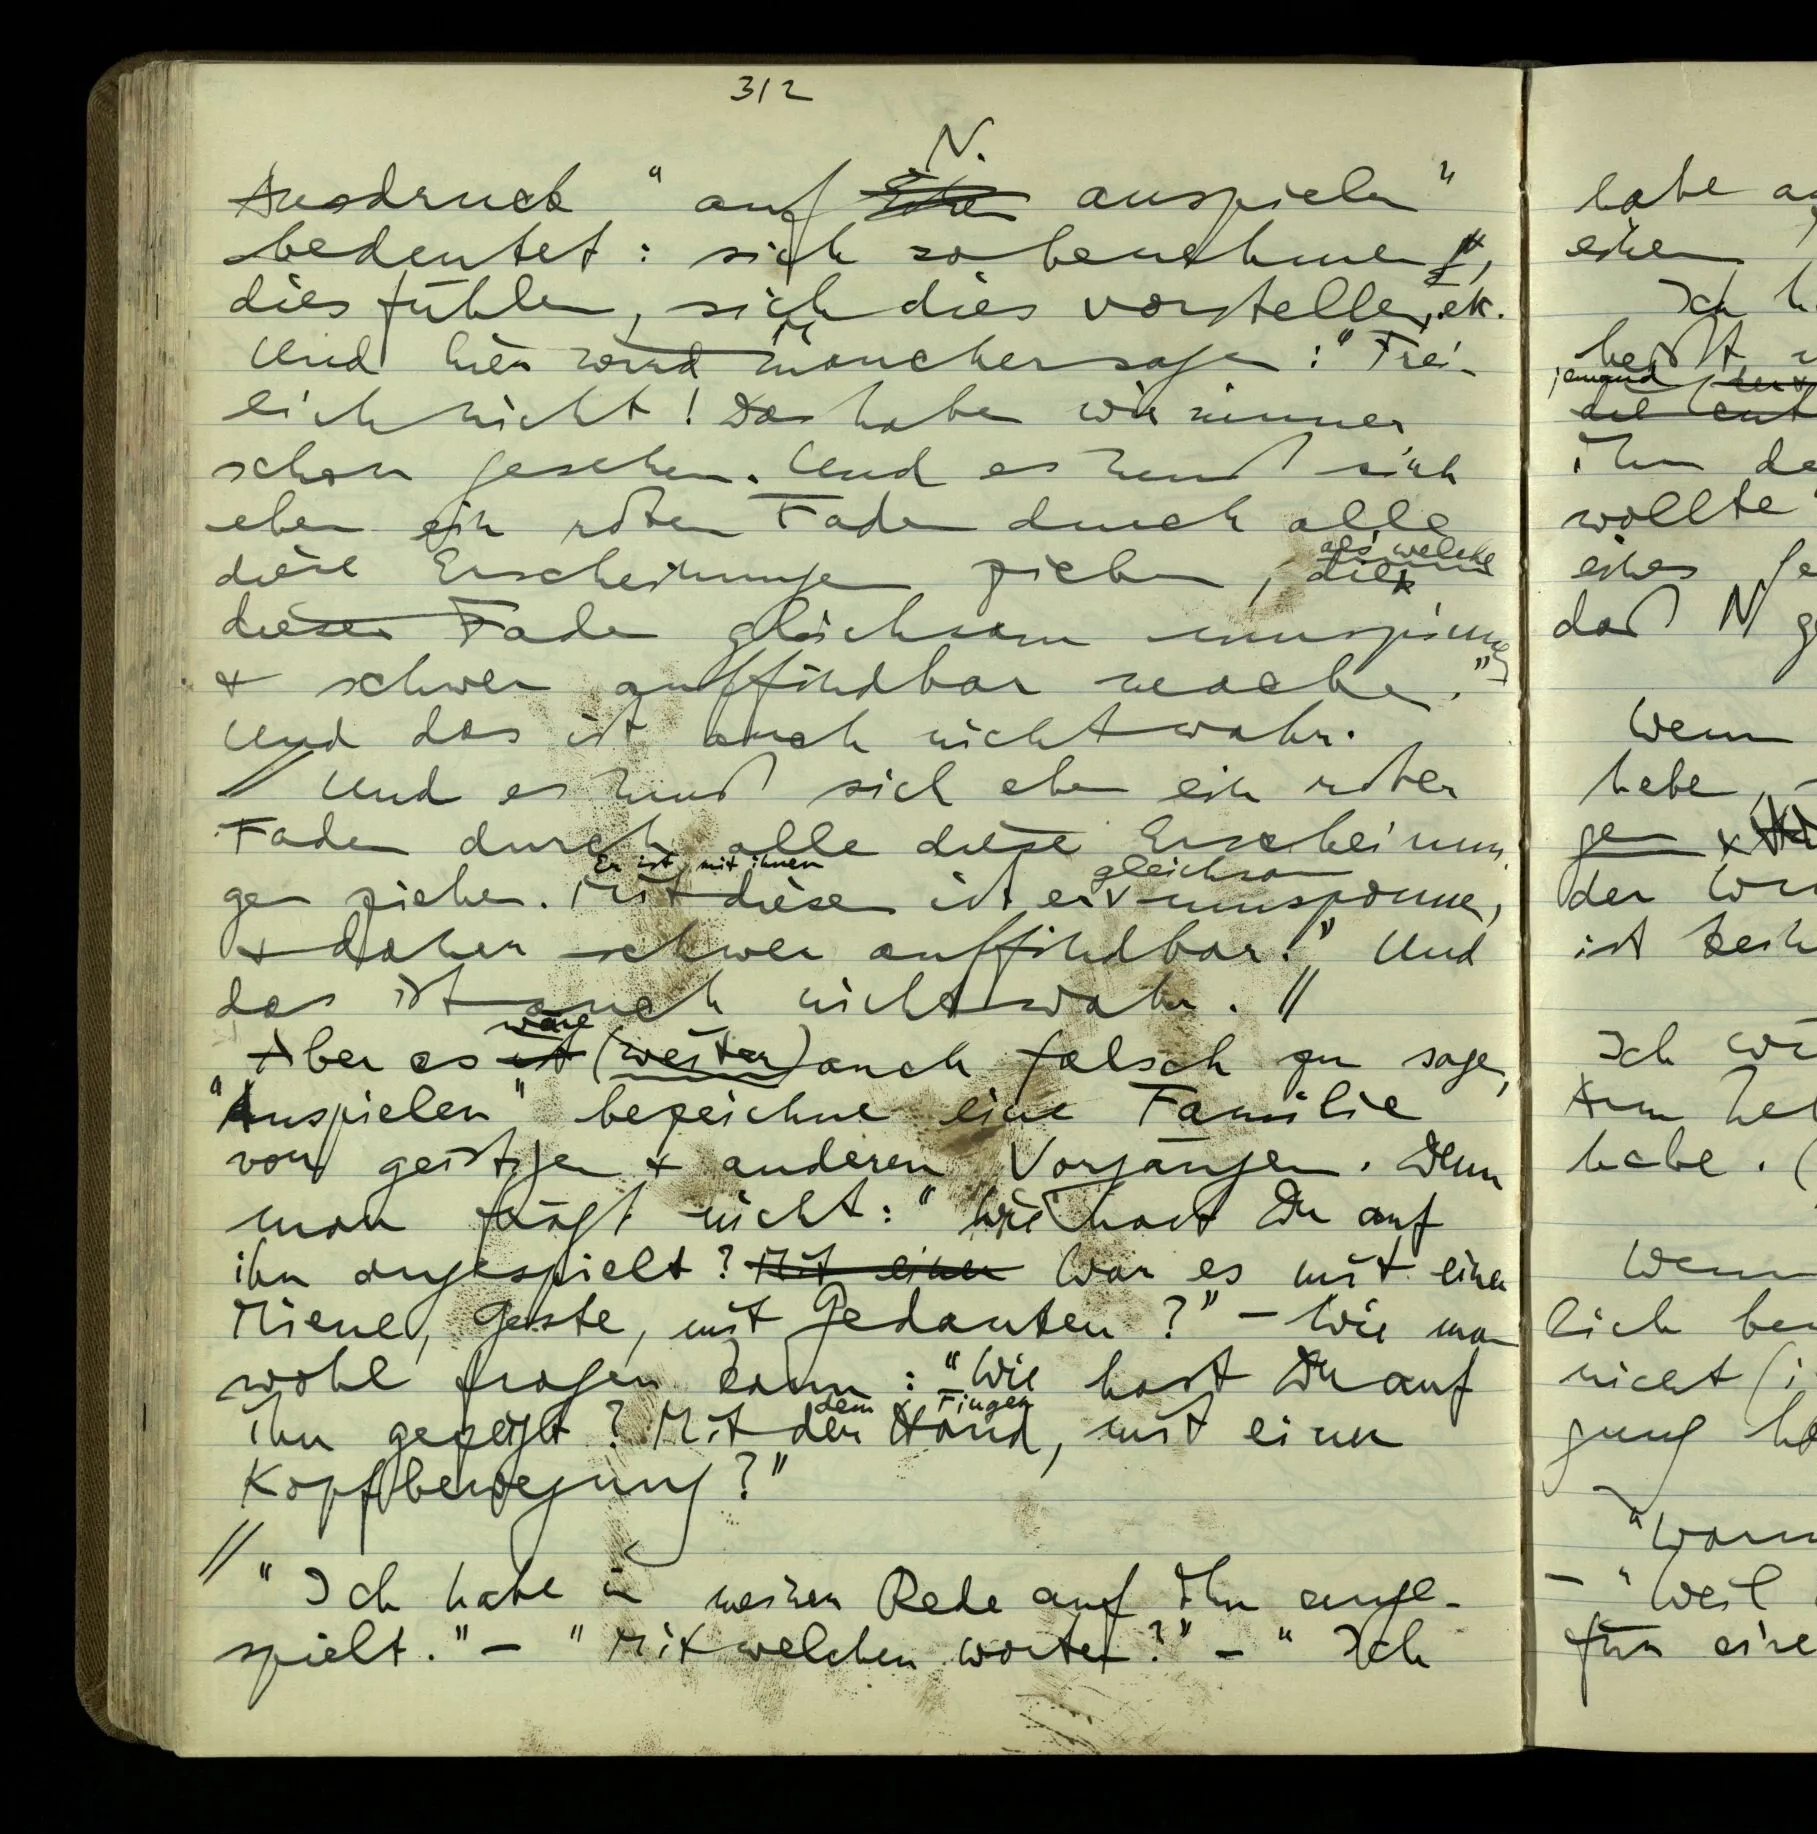 312
N.
Ausdruck "auf anspielen"
bedeutet: sich so benehmen,
dies fühlen, sich dies vorstellen, etc.
Und hier wird mancher sagen: "Frei-
lich nicht! Das haben wir immer
schon gesehen. Und es muß sich
eben ein roter Faden durch alle
als welche
diese Erscheinungen ziehen, die
diesen Faden gleichsam umspinnen
& schwer auffindbar machen."
Und das ist auch nicht wahr.
// Und es muß sich eben ein roter
Faden durch alle diese Erscheinun-
Er ist mit ihnen gleichsam
gen ziehen. Mit diesen ist er umsponnen,
& daher schwer auffindbar." Und
das ist auch nicht wahr. //
wäre
Aber es ist (weiter) auch falsch zu sagen,
"Anspielen" bezeichne eine Familie
von geistigen & anderen Vorgängen. Denn
man frägt nicht: "Wie hast Du auf
ihn angespielt? Mit einer War es mit einer
Miene, Geste, mit Gedanken?" – Wie man
wohl fragen kann: "Wie hast Du auf
dem Finger
ihn gezeigt? Mit der Hand, mit einer
Kopfbewegung?"
// "Ich habe in meiner Rede auf ihn ange-
spielt." – "Mit welchen Worten?" – "Ich
habe
einen
Ich
heißt
jemand
ihm
wollte
eines
daß N
Wenn
hebe,
gen &
der
ist kein
Ich
Arm
habe. (
Wenn
lich
nicht (
gung
"Warum
– "Weil
für eine